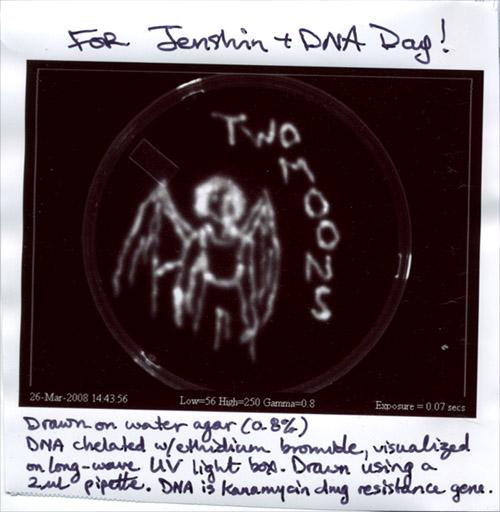 For Jenshin + DNA Day!
TWO
MOONS
26-Mar-2008 14:43:56 Low=56 High=250 Gamma=0.8 Exposure = 0.07 secs
Drawn on water agar (0.8%)
DNA chelated w/ethidium bromide, visualized
on long-wave UV light box. Drawn using a
2ul pipette. DNA is Kanamycin drug resistance gene.